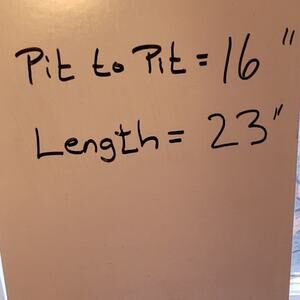 Pit to Pit = 16"
Length = 23"